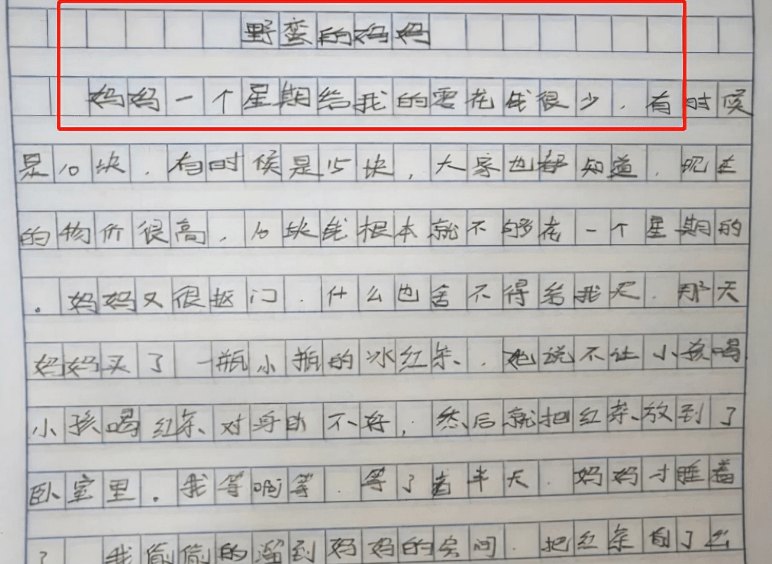 野蛮的妈妈
妈妈一个星期给我的零花钱很少,有时候
是10块,有时候是15块,大家也都知道,现在
的物价很高,10块钱根本就不够花一个星期的
。妈妈又很抠门,什么也舍不得给我买,那天
妈妈买了一瓶小瓶的冰红茶,她说不让小孩喝
小孩喝红茶对身体不好,然后就把红茶放到了
卧室里。我等啊等,等了老半天,妈妈才睡着
了,我偷偷的溜到妈妈的房间,把红茶偷了出